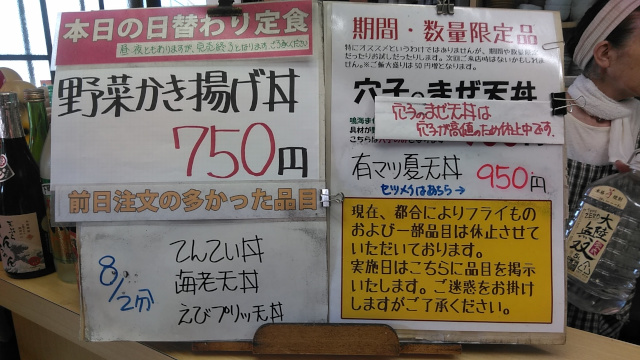 本日の日替わり定食
野菜かき揚げ丼
750円
前日注文の多かった品目
8/2分
てんてい丼
海老天丼
えびプリッ天丼
期間・数量限定品
特にオススメというわけではありませんが、期間や数量限定
だったりお試しだったりします。次回ご来店時はないかもしれませ
ん。※ご飯大盛りは50円増となります。
穴子のまぜ天丼
鳴海まぜ
具材が
こちらは
穴子のまぜ天丼は
穴子が高値のため休止中です。
有マリ夏天丼 950円
セツメイはあちら→
現在、都合によりフライもの
および一部品目は休止させて
いただいております。
実施日はこちらに品目を掲示
いたします。ご迷惑をお掛け
しますがご了承ください。
大陸
無双